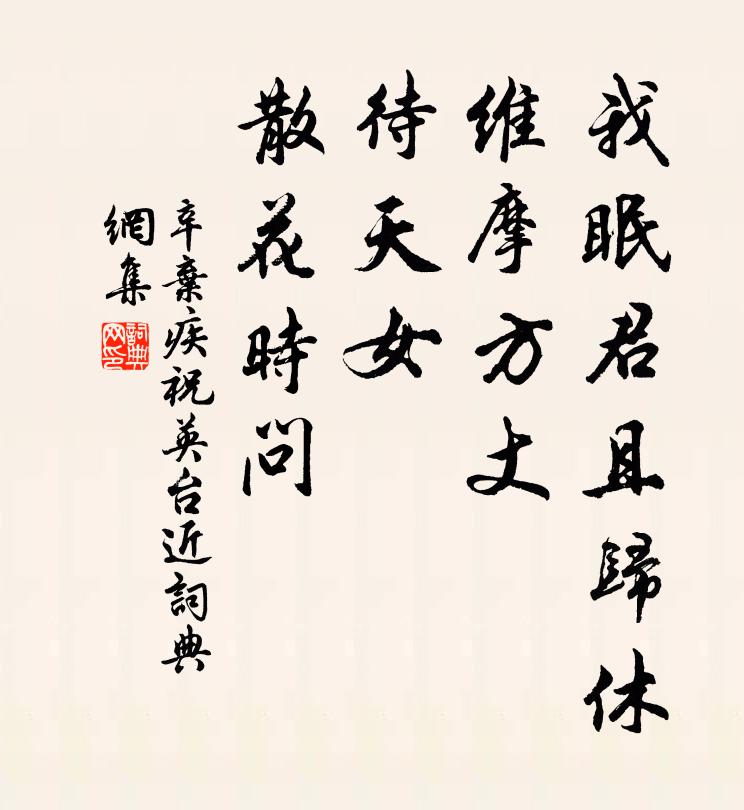 我眠君且歸休
維摩方丈
待天女
散花時問
辛棄疾祝英台近詞典
網集
詞典
网印